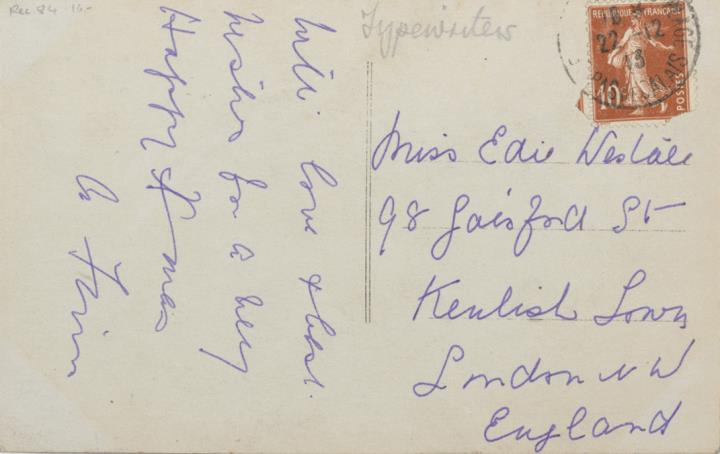 Rec. 84 10.-
Typewriters
With love & best
wishes for a very
Happy Xmas
REPUBLIQUE FRANÇAISE
22-12
13
10
POSTES
Miss Edie
98 Gaisford St
Kentish Town
London NW
England